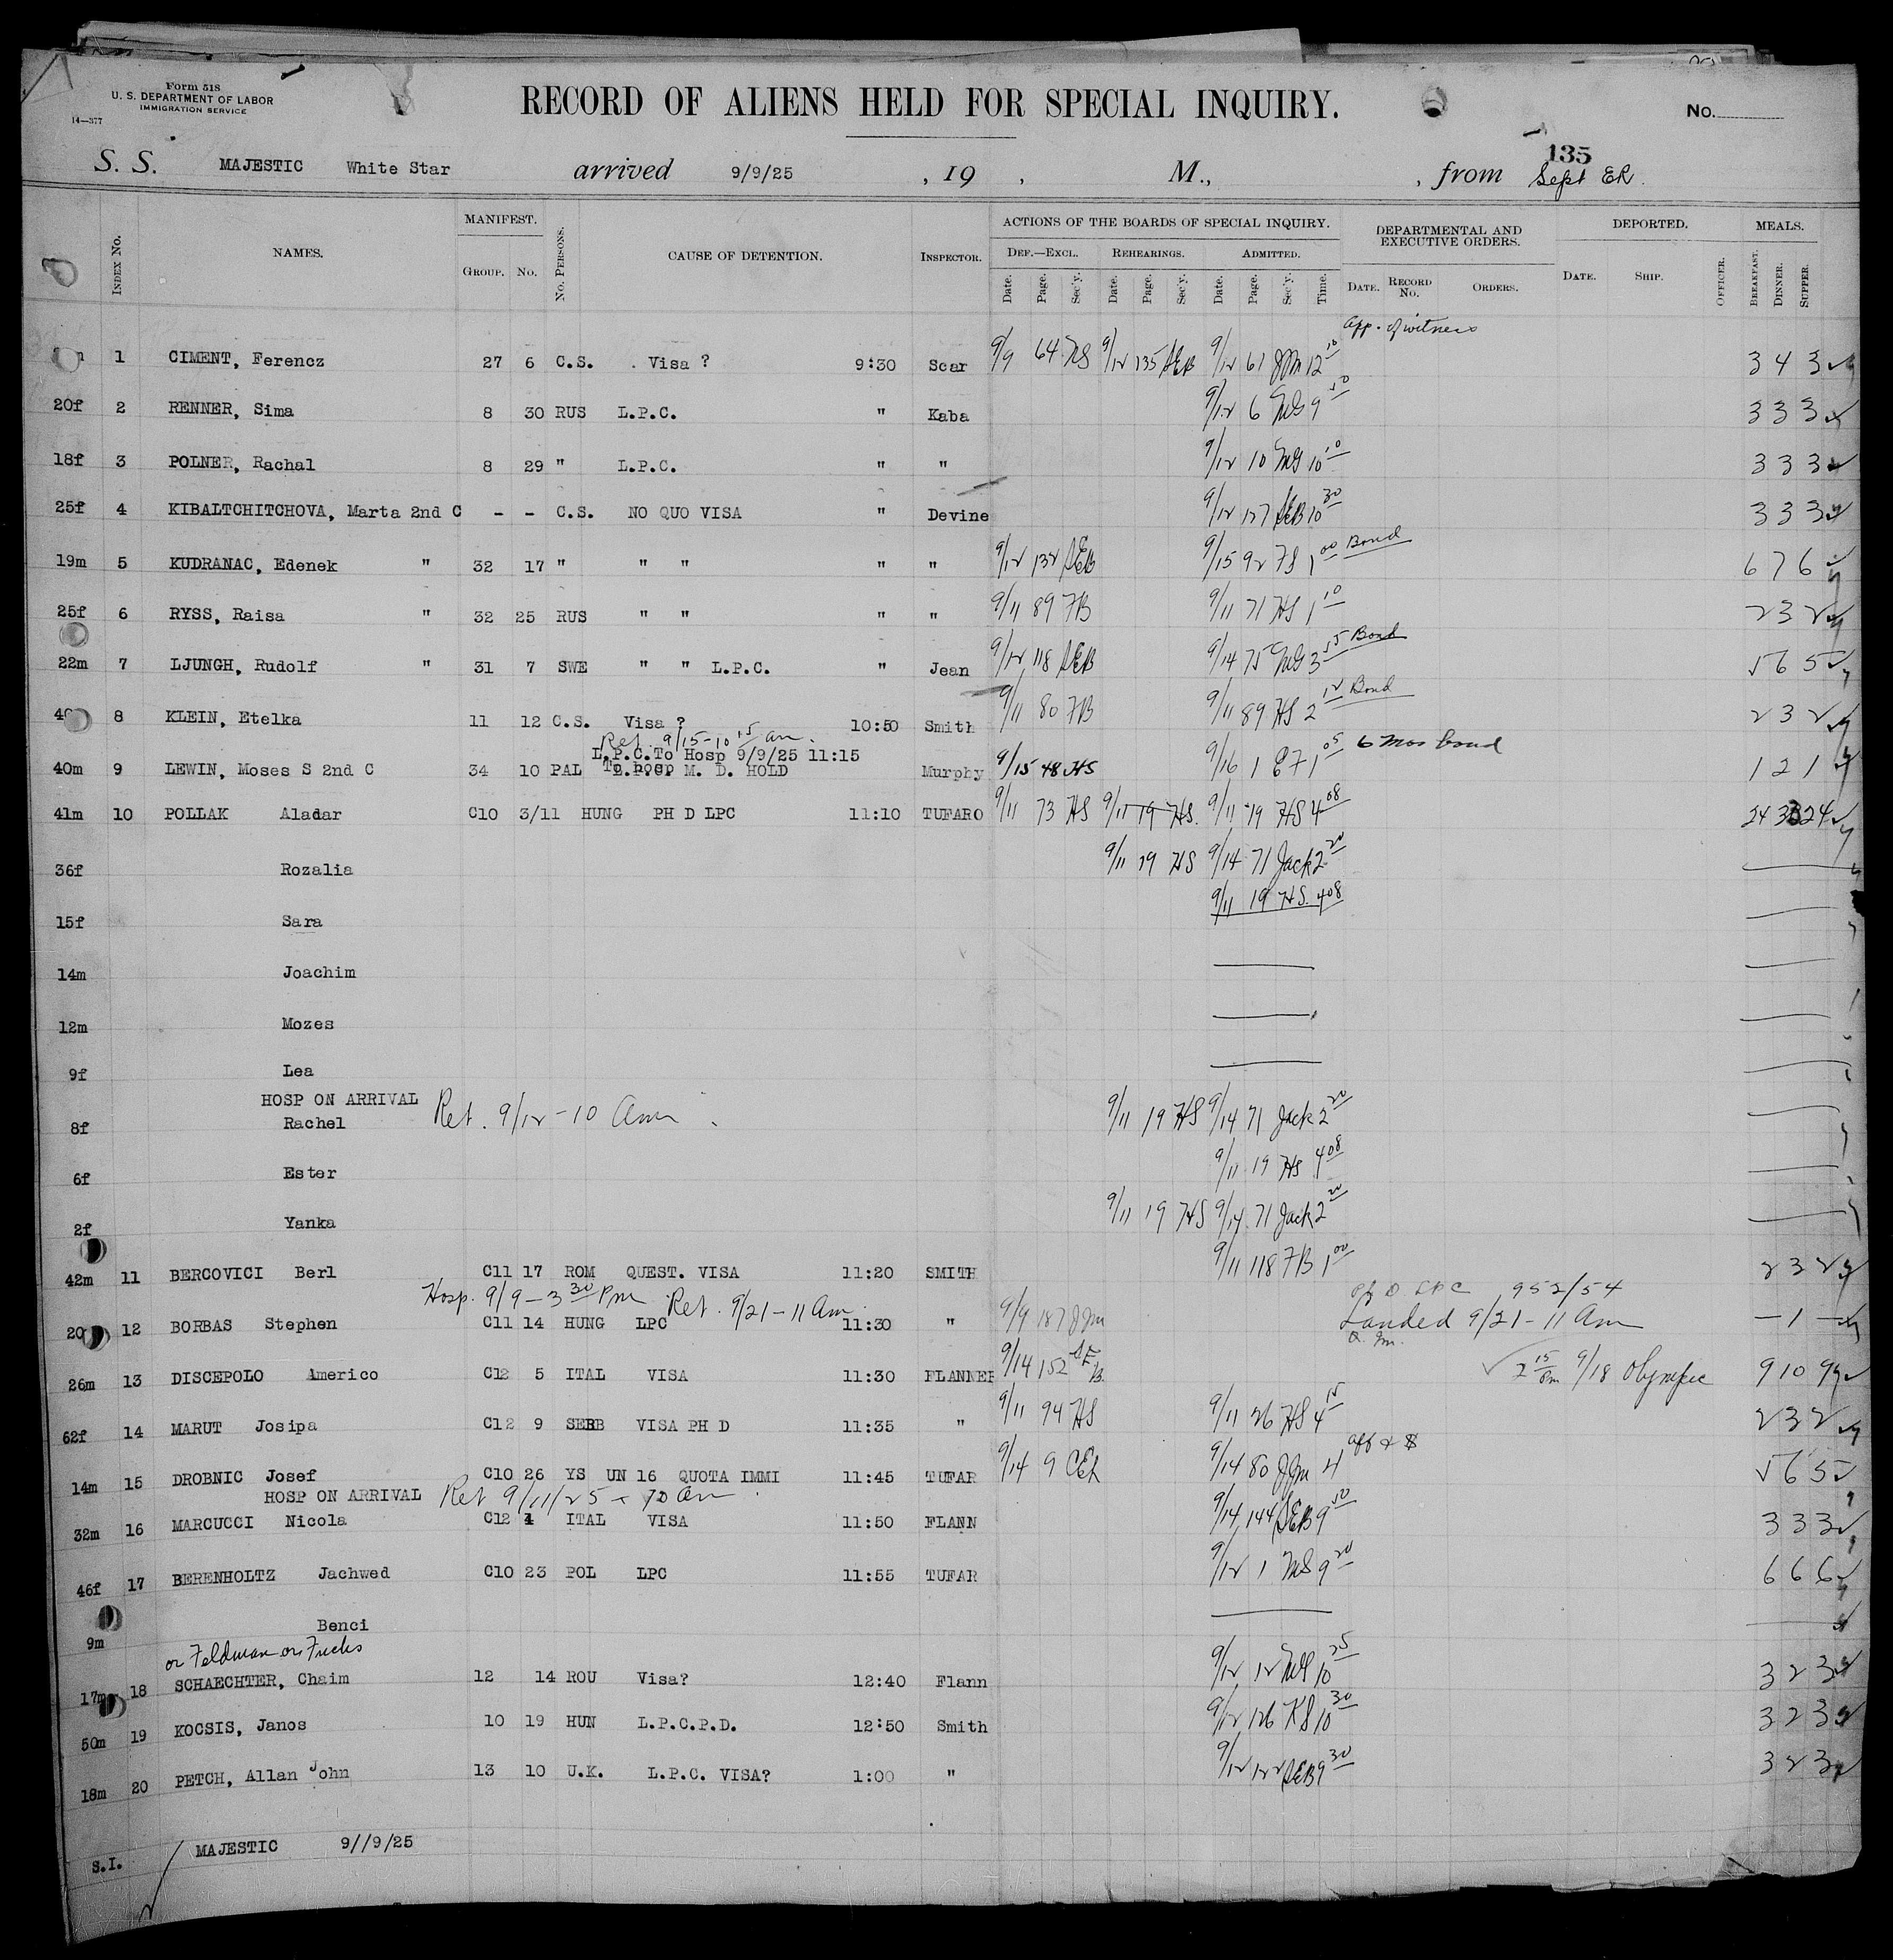 Form 518
U. S. DEPARTMENT OF LABOR
IMMIGRATION SERVICE
14—377
RECORD OF ALIENS HELD FOR SPECIAL INQUIRY.
No.
135
S. S. MAJESTIC White Star arrived 9/9/25 , 19 , M., , from Sept ER.
INDEX No. NAMES. MANIFEST. GROUP. No. No. PERSONS. CAUSE OF DETENTION. INSPECTOR. ACTIONS OF THE BOARDS OF SPECIAL INQUIRY. DEPARTMENTAL AND EXECUTIVE ORDERS. DEPORTED. MEALS.
DEF.—EXCL. REHEARINGS. ADMITTED.
Date. Page. Sec'y. Date. Page. Sec'y. Date. Page. Sec'y. Time. DATE. RECORD No. ORDERS. DATE. SHIP. OFFICER. BREAKFAST. DINNER. SUPPER.
app. of witness
1 CIMENT, Ferencz 27 6 C.S. . Visa ? 9:30 Scar 9/9 64 HS 9/12 135 SEB 9/12 61 JJM 12 10 3 4 3
20f 2 RENNER, Sima 8 30 RUS L.P.C. " Kaba 9/12 6 MG 9 50 3 3 3
18f 3 POLNER, Rachal 8 29 " L.P.C. " " 9/12 10 MG 10 10 3 3 3
25f 4 KIBALTCHITCHOVA, Marta 2nd C - - C.S. NO QUO VISA " Devine 9/12 127 SEB 10 30 3 3 3
19m 5 KUDRANAC, Edenek " 32 17 " " " " " 9/12 132 SEB 9/15 92 FS 1 00 Bond 6 7 6
25f 6 RYSS, Raisa " 32 25 RUS " " " " 9/11 89 FB 9/11 71 HS 1 10 2 3 2
22m 7 LJUNGH, Rudolf " 31 7 SWE " " L.P.C. " Jean 9/12 118 SEB 9/14 75 MG 3 55 Bond 5 6 5
8 KLEIN, Etelka 11 12 C.S. Visa ? 10:50 Smith 9/11 80 FB 9/11 89 HS 2 12 Bond 2 3 2
Ret. 9/15-10 15 am.
L.P.C. To Hosp 9/9/25 11:15
40m 9 LEWIN, Moses S 2nd C 34 10 PAL M. D. HOLD Murphy 9/15 48 HS 9/16 1 EF 1 05 6 Mos bond 1 2 1
41m 10 POLLAK Aladar C10 3/11 HUNG PH D LPC 11:10 TUFARO 9/11 73 HS 9/11 19 HS. 9/11 19 HS 4 08 24 33 24
36f Rozalia 9/11 19 HS 9/14 71 Jack 2 20
15f Sara 9/11 19 HS. 4 08
14m Joachim
12m Mozes
9f Lea
HOSP ON ARRIVAL Ret. 9/12 - 10 am
8f Rachel 9/11 19 HS 9/14 71 Jack 2 20
6f Ester 9/11 19 HS 4 08
2f Yanka 9/11 19 HS 9/14 71 Jack 2 20
42m 11 BERCOVICI Berl C11 17 ROM QUEST. VISA 11:20 SMITH 9/11 118 FB 1 00 2 3 2
Hosp. 9/9 - 3 30 Pm Ret. 9/21 - 11 Am LPC 952/54
20 12 BORBAS Stephen C11 14 HUNG LPC 11:30 " 9/9 187 JJm Landed 9/21 - 11 am — 1 —
26m 13 DISCEPOLO Americo C12 5 ITAL VISA 11:30 FLANNER 9/14 152 SEB 2 15 Pm 9/18 Olympic 9 10 9
62f 14 MARUT Josipa C12 9 SERB VISA PH D 11:35 " 9/11 94 HS 9/11 26 HS 4 15 2 3 2
aff & $
14m 15 DROBNIC Josef C10 26 YS UN 16 QUOTA IMMI 11:45 TUFAR 9/14 9 CEL 9/14 80 JJm 4 5 6 5
HOSP ON ARRIVAL Ret 9/11/25 - 10 am
32m 16 MARCUCCI Nicola C12 4 ITAL VISA 11:50 FLANN 9/14 144 SEB 9 50 3 3 3
46f 17 BERENHOLTZ Jachwed C10 23 POL LPC 11:55 TUFAR 9/12 1 MS 9 20 6 6 6
9m Benci
or Feldman or Fucks
17m 18 SCHAECHTER, Chaim 12 14 ROU Visa? 12:40 Flann 9/12 12 MG 10 25 3 2 3
50m 19 KOCSIS, Janos 10 19 HUN L.P.C.P.D. 12:50 Smith 9/12 126 KS 10 30 3 2 3
18m 20 PETCH, Allan John 13 10 U.K. L.P.C. VISA? 1:00 " 9/12 122 SEB 9 30 3 2 3
S.I. MAJESTIC 9//9/25